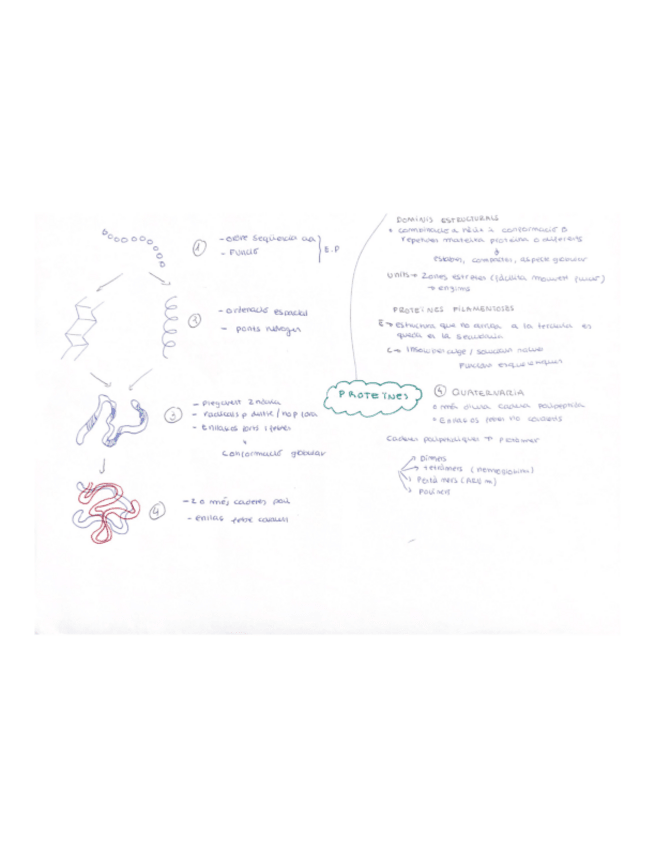 1
- ordre seqüència aa
- FUNCIÓ
E.P
2
- ordenació espacial
- ponts hidrogen
3
- plegament 2nària
- radicals p dintre / no p fora
- Enllaços forts i febles
conformació globular
4
- 2 o més cadenes poli
- enllaç febre cadenes
PROTEÏNES
DOMINIS ESTRUCTURALS
combinació α hèlix i conformació B
repeteixen mateixa proteïna o diferents
estables, compactes, aspecte globular
units → Zones estretes (facilita moviment
→ enzims
PROTEÏNES FILAMENTOSES
E → estructura que no arriba a la terciària es
queda en la secundària
C → Insolubles aigua / solucions
Funcions esquelètiques
4 QUATERNÀRIA
o més d'una cadena polipeptídica
Enllaços febles no covalents
Cadena polipeptídica → Protòmer
Dímers
tetràmers (hemoglobina)
Pentàmers
Polímers